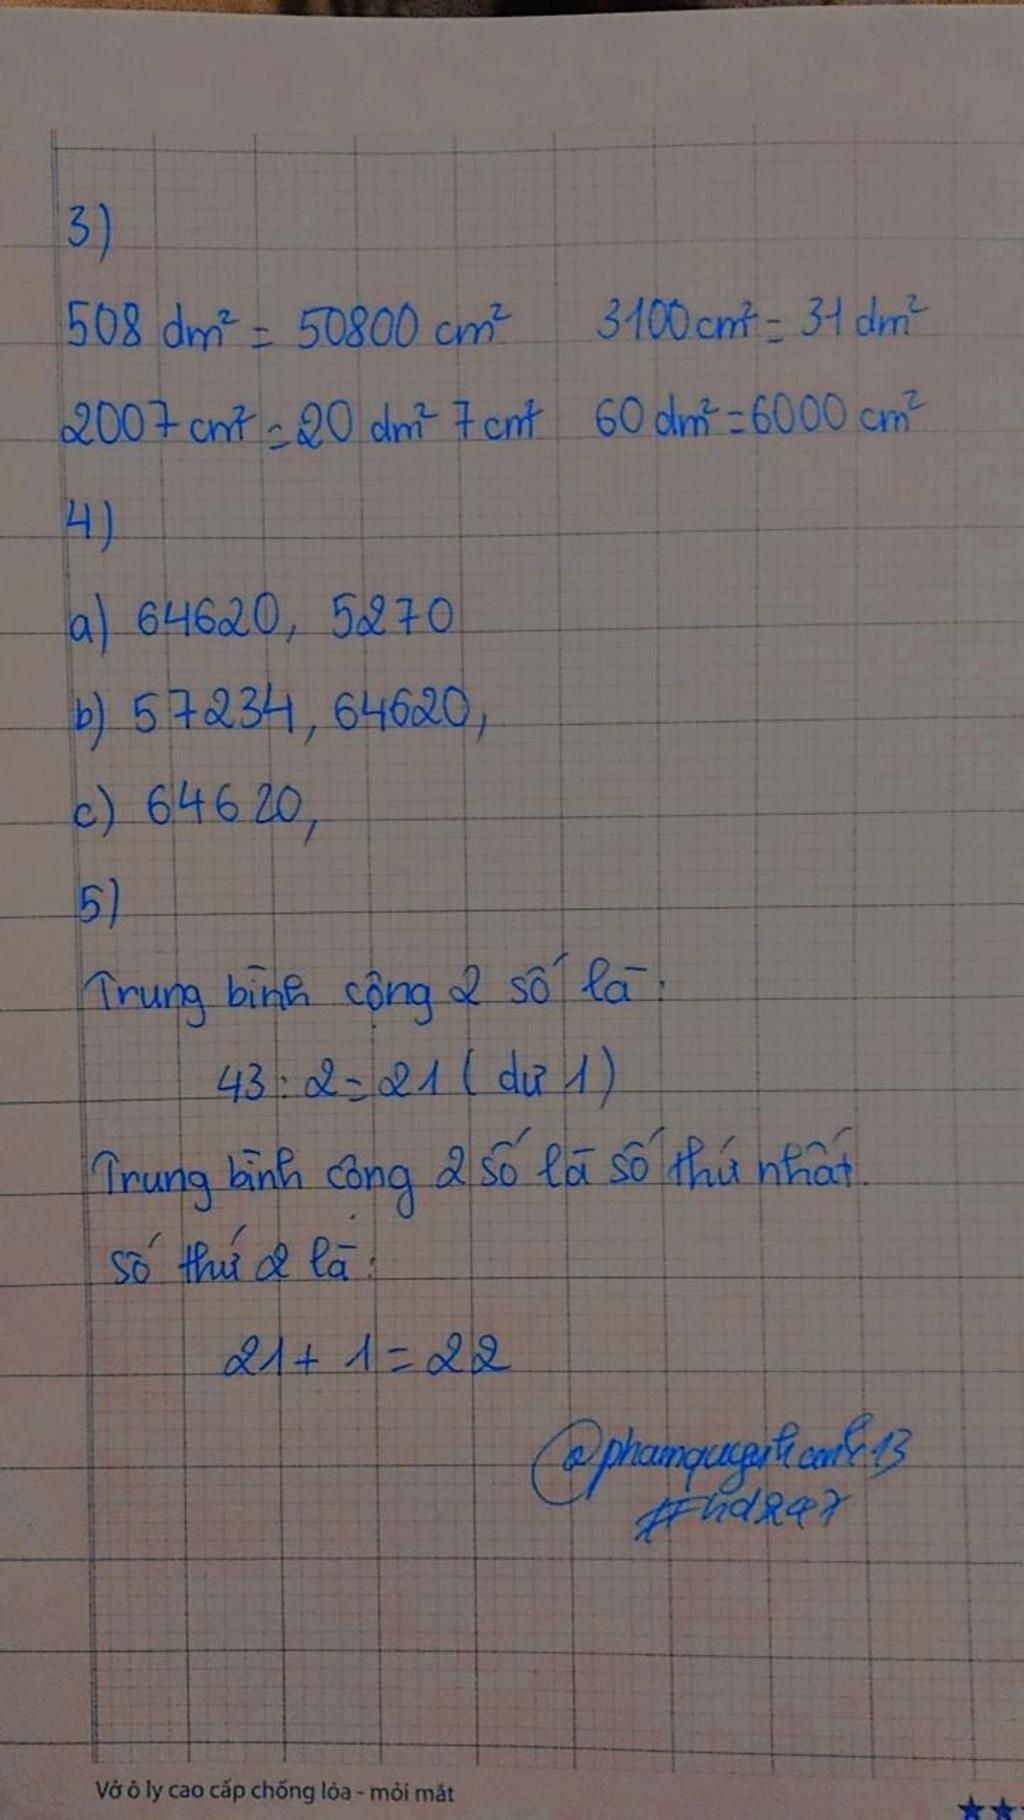 3)
508 dm² = 50800 cm² 3100 cm² = 31 dm²
2007 cm² = 20 dm² 7 cm² 60 dm² = 6000 cm²
4)
a) 64620, 5270
b) 57234, 64620,
c) 64620,
5)
Trung bình cộng 2 số là:
43 : 2 = 21 ( dư 1)
Trung bình cộng 2 số là số thứ nhất.
số thứ 2 là:
21 + 1 = 22
@phamquynhanh13
#hd247
Vở ô ly cao cấp chống lóa - mỏi mắt